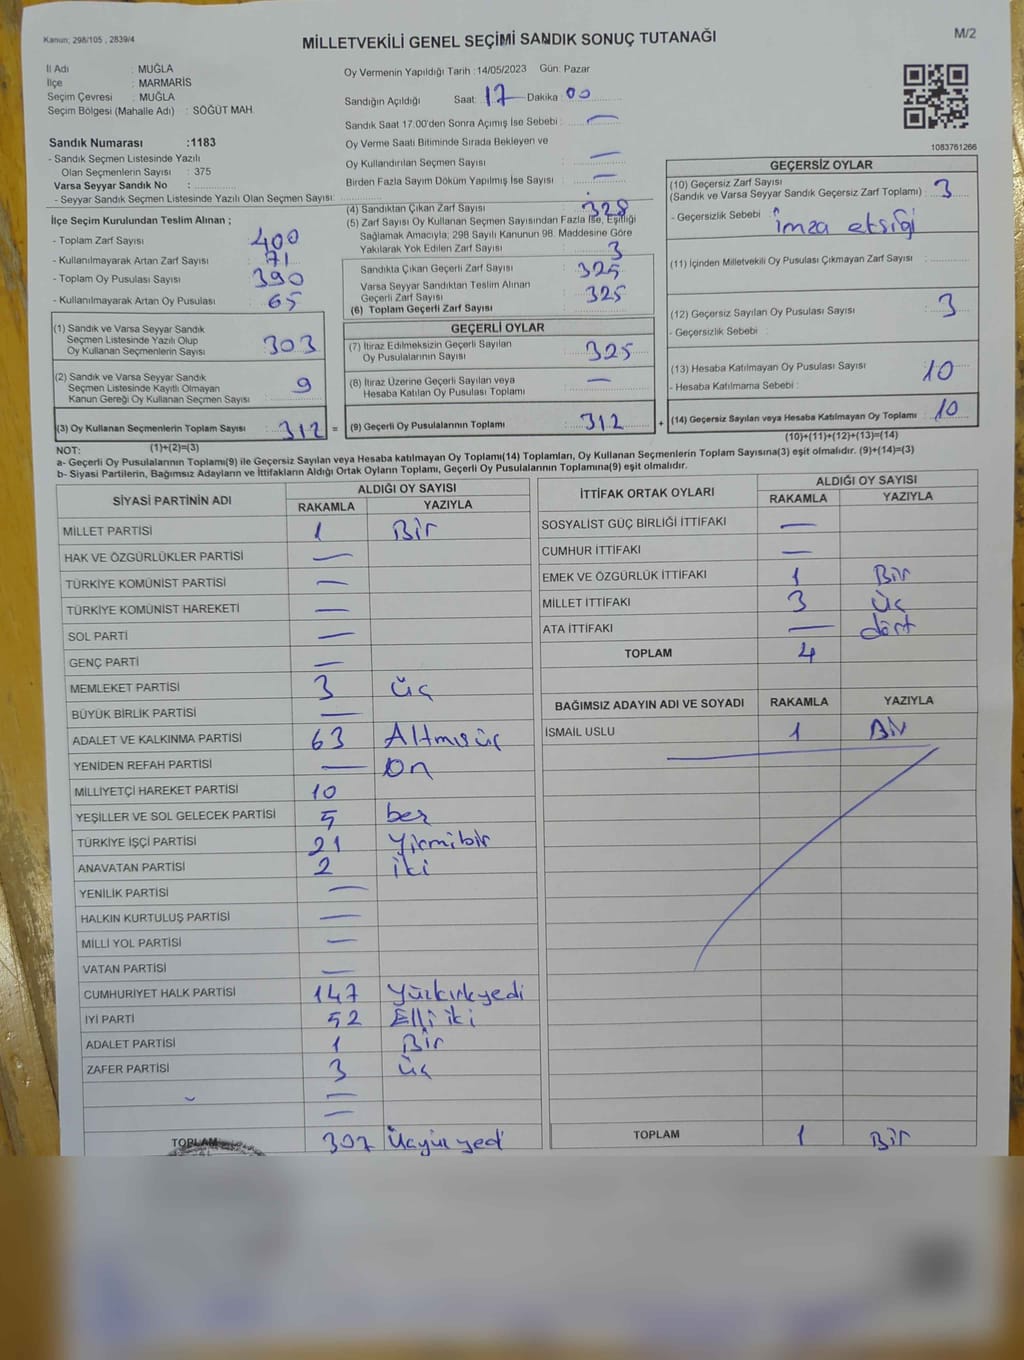 Kanun; 298/105 , 2839/4
MİLLETVEKİLİ GENEL SEÇİMİ SANDIK SONUÇ TUTANAĞI
M/2
İl Adı : MUĞLA
İlçe : MARMARİS
Seçim Çevresi : MUĞLA
Seçim Bölgesi (Mahalle Adı) : SÖĞÜT MAH.
Sandık Numarası :1183
- Sandık Seçmen Listesinde Yazılı
Olan Seçmenlerin Sayısı : 375
Varsa Seyyar Sandık No :
- Seyyar Sandık Seçmen Listesinde Yazılı Olan Seçmen Sayısı:
Oy Vermenin Yapıldığı Tarih :14/05/2023 Gün: Pazar
Sandığın Açıldığı Saat: 17 Dakika: 00
Sandık Saat 17:00'den Sonra Açımış İse Sebebi : —
Oy Verme Saati Bitiminde Sırada Bekleyen ve
Oy Kullandırılan Seçmen Sayısı : —
Birden Fazla Sayım Döküm Yapılmış İse Sayısı : —
1083761266
İlçe Seçim Kurulundan Teslim Alınan ;
- Toplam Zarf Sayısı : 400
- Kullanılmayarak Artan Zarf Sayısı : 71
- Toplam Oy Pusulası Sayısı : 390
- Kullanılmayarak Artan Oy Pusulası : 65
(1) Sandık ve Varsa Seyyar Sandık
Seçmen Listesinde Yazılı Olup
Oy Kullanan Seçmenlerin Sayısı : 303
(2) Sandık ve Varsa Seyyar Sandık
Seçmen Listesinde Kayıtlı Olmayan
Kanun Gereği Oy Kullanan Seçmen Sayısı : 9
(3) Oy Kullanan Seçmenlerin Toplam Sayısı : 312 =
(4) Sandıktan Çıkan Zarf Sayısı : 328
(5) Zarf Sayısı Oy Kullanan Seçmen Sayısından Fazla İse, Eşitliği
Sağlamak Amacıyla; 298 Sayılı Kanunun 98. Maddesine Göre
Yakılarak Yok Edilen Zarf Sayısı : 3
Sandıkta Çıkan Geçerli Zarf Sayısı : 325
Varsa Seyyar Sandıktan Teslim Alınan
Geçerli Zarf Sayısı : 325
(6) Toplam Geçerli Zarf Sayısı :
GEÇERLİ OYLAR
(7) İtiraz Edilmeksizin Geçerli Sayılan
Oy Pusulalarının Sayısı : 325
(8) İtiraz Üzerine Geçerli Sayılan veya
Hesaba Katılan Oy Pusulası Toplamı : —
(9) Geçerli Oy Pusulalarının Toplamı : 312 +
GEÇERSİZ OYLAR
(10) Geçersiz Zarf Sayısı
(Sandık ve Varsa Seyyar Sandık Geçersiz Zarf Toplamı) : 3
- Geçersizlik Sebebi : İmza eksiği
(11) İçinden Milletvekili Oy Pusulası Çıkmayan Zarf Sayısı :
(12) Geçersiz Sayılan Oy Pusulası Sayısı : 3
- Geçersizlik Sebebi :
(13) Hesaba Katılmayan Oy Pusulası Sayısı : 10
- Hesaba Katılmama Sebebi :
(14) Geçersiz Sayılan veya Hesaba Katılmayan Oy Toplamı : 10
NOT: (1)+(2)=(3)
(10)+(11)+(12)+(13)=(14)
a- Geçerli Oy Pusulalarının Toplamı(9) ile Geçersiz Sayılan veya Hesaba katılmayan Oy Toplamı(14) Toplamları, Oy Kullanan Seçmenlerin Toplam Sayısına(3) eşit olmalıdır. (9)+(14)=(3)
b- Siyasi Partilerin, Bağımsız Adayların ve İttifakların Aldığı Ortak Oyların Toplamı, Geçerli Oy Pusulalarının Toplamına(9) eşit olmalıdır.
SİYASİ PARTİNİN ADI ALDIĞI OY SAYISI
RAKAMLA YAZIYLA
MİLLET PARTİSİ 1 Bir
HAK VE ÖZGÜRLÜKLER PARTİSİ —
TÜRKİYE KOMÜNİST PARTİSİ —
TÜRKİYE KOMÜNİST HAREKETİ —
SOL PARTİ —
GENÇ PARTİ —
MEMLEKET PARTİSİ 3 üç
BÜYÜK BİRLİK PARTİSİ —
ADALET VE KALKINMA PARTİSİ 63 Altmışüç
YENİDEN REFAH PARTİSİ — On
MİLLİYETÇİ HAREKET PARTİSİ 10
YEŞİLLER VE SOL GELECEK PARTİSİ 5 beş
TÜRKİYE İŞÇİ PARTİSİ 21 Yirmibir
ANAVATAN PARTİSİ 2 iki
YENİLİK PARTİSİ —
HALKIN KURTULUŞ PARTİSİ —
MİLLİ YOL PARTİSİ —
VATAN PARTİSİ —
CUMHURİYET HALK PARTİSİ 147 Yüzkırkyedi
İYİ PARTİ 52 Elli iki
ADALET PARTİSİ 1 Bir
ZAFER PARTİSİ 3 üç
—
—
TOPLAM 307 Üçyüz yedi
İTTİFAK ORTAK OYLARI ALDIĞI OY SAYISI
RAKAMLA YAZIYLA
SOSYALİST GÜÇ BİRLİĞİ İTTİFAKI —
CUMHUR İTTİFAKI —
EMEK VE ÖZGÜRLÜK İTTİFAKI 1 Bir
MİLLET İTTİFAKI 3 üç
ATA İTTİFAKI — dört
TOPLAM 4
BAĞIMSIZ ADAYIN ADI VE SOYADI RAKAMLA YAZIYLA
İSMAİL USLU 1 Bir
TOPLAM 1 Bir